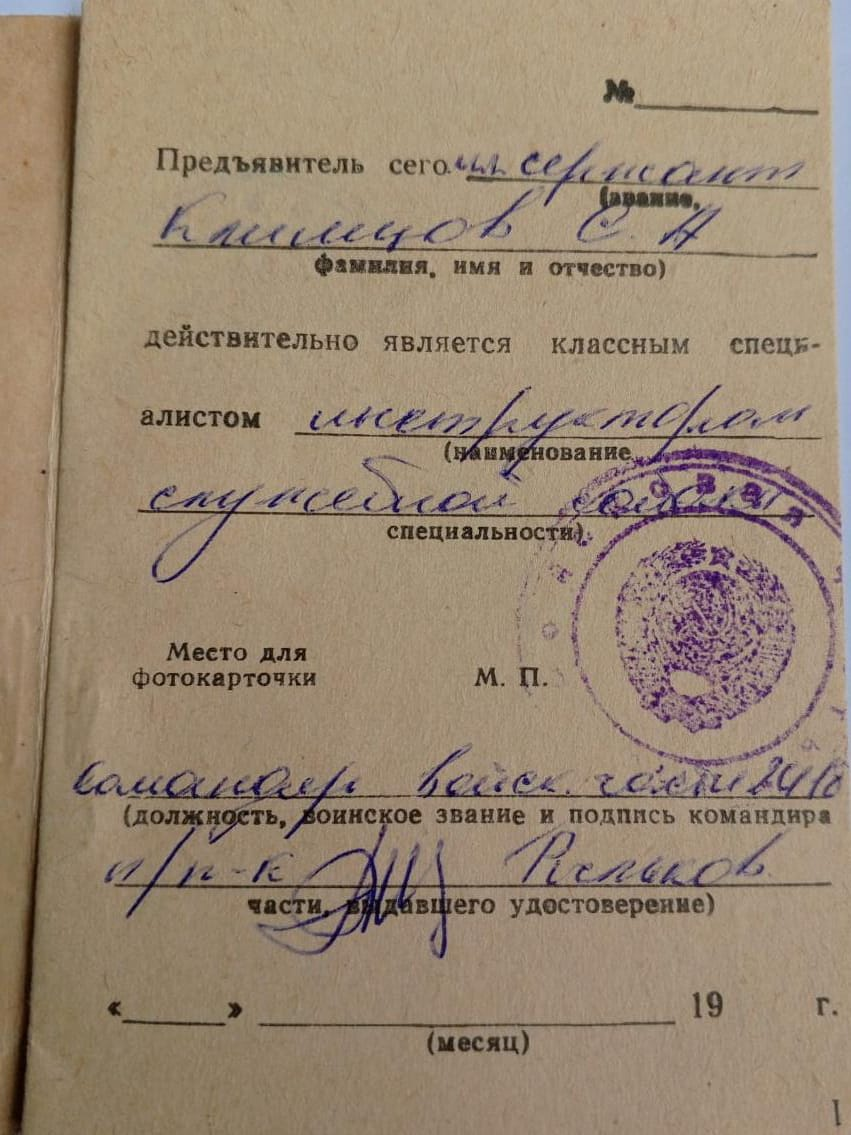 №
Предъявитель сего мл. сержант
(звание,
Климцов С. А
фамилия, имя и отчество)
действительно является классным специ-
алистом инструктором
(наименование
служебной собаки
специальности)
Место для
фотокарточки М. П.
командир войск. части
(должность, воинское звание и подпись командира
п/п-к
части, выдавшего удостоверение)
« » 19 г.
(месяц)
1